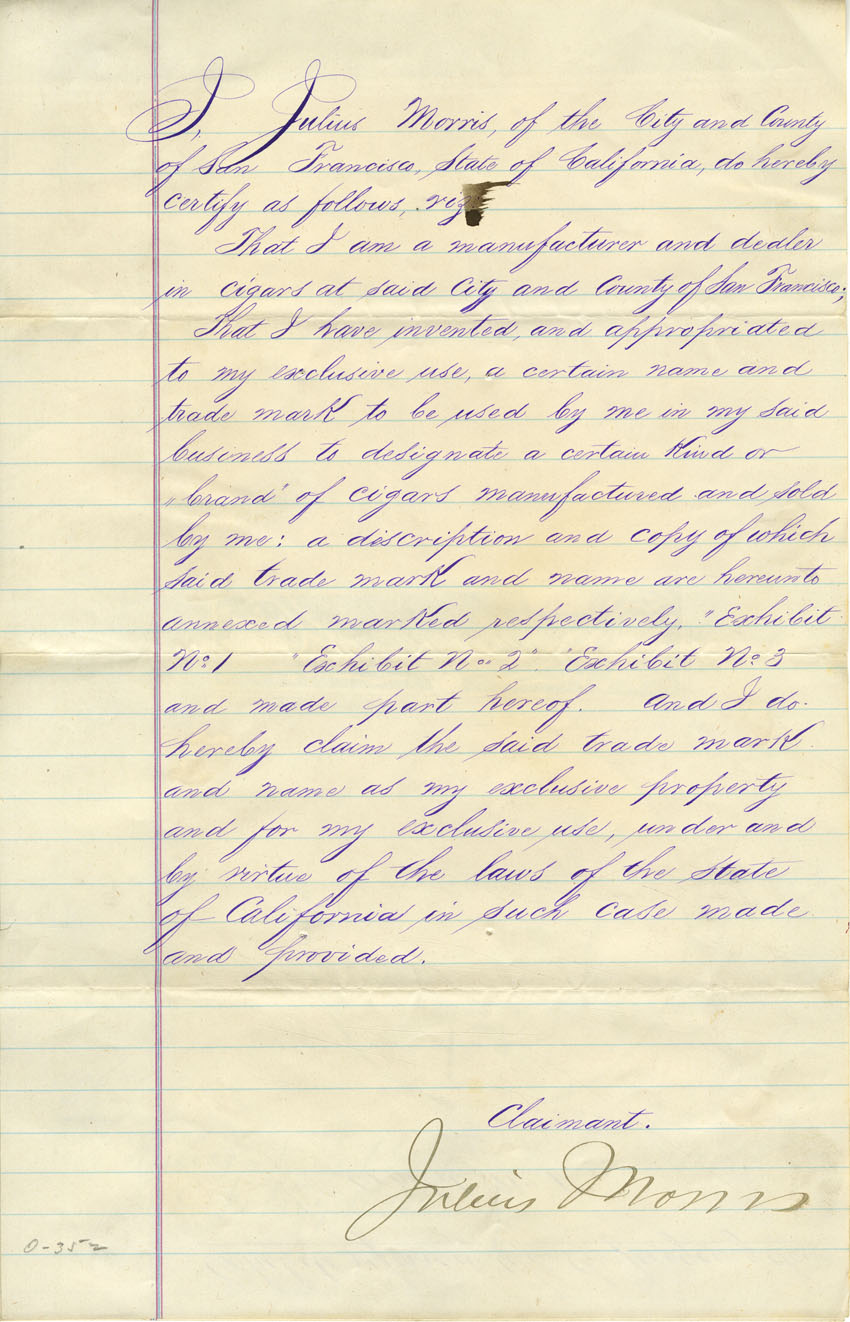 I, Julius Morris, of the City and County
of San Francisco, State of California, do hereby
certify as follows, viz
That I am a manufacturer and dealer
in cigars at said City and County of San Francisco;
That I have invented, and appropriated
to my exclusive use, a certain name and
trade mark to be used by me in my said
business to designate a certain kind or
"brand" of cigars manufactured and sold
by me: a description and copy of which
said trade mark and name are hereunto
annexed marked respectively, "Exhibit
No. 1 "Exhibit No. 2". "Exhibit No. 3
and made part hereof. And I do
hereby claim the said trade mark
and name as my exclusive property
and for my exclusive use, under and
by virtue of the laws of the State
of California in such case made
and provided.
Claimant.
Julius Morris
0-352